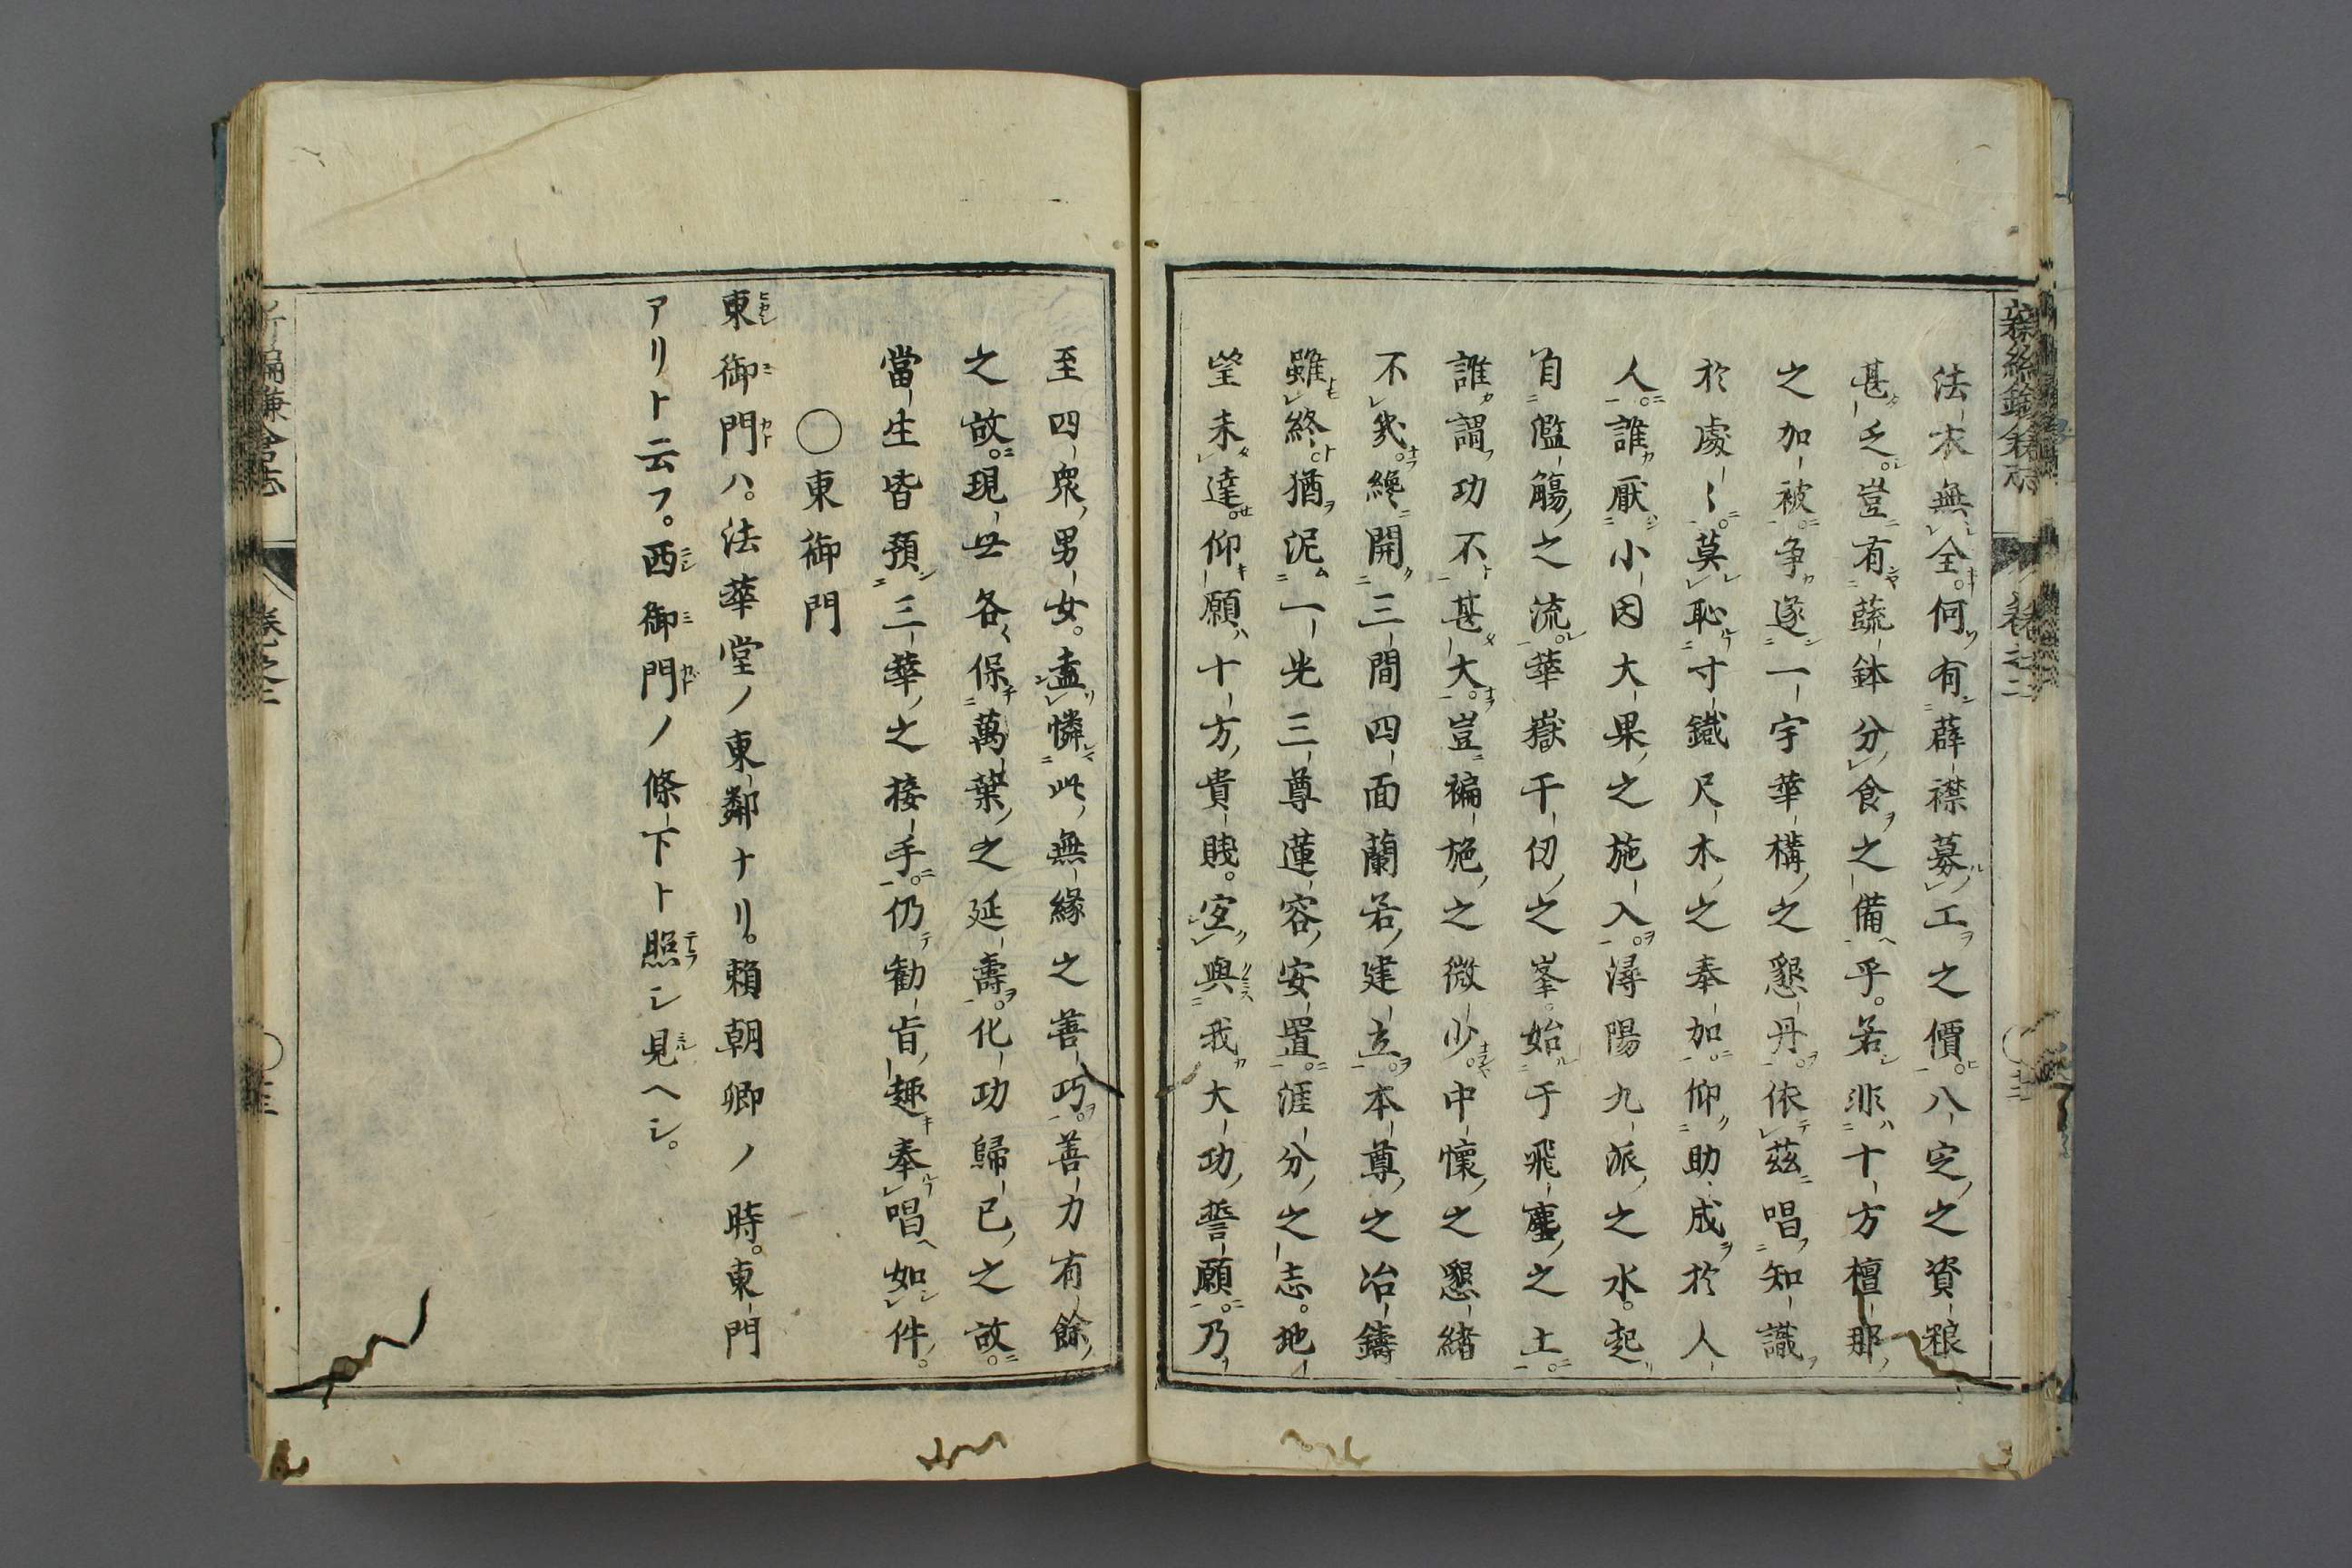 法衣無全何有薜襟募工之價八定之資粮
甚乏豈有蔬鉢分食之備乎若非十方檀那
之加被争遂一宇華構之懇丹依茲唱知識
於處〻莫恥寸鐵尺木之奉加仰助成於人
人誰厭小因大果之施入潯陽九派之水起
自濫觴之流華嶽千仞之峯始于飛塵之土
誰謂功不甚大豈褊施之微少中懷之懇緒
不幾纔開三間四面蘭若建立本尊之冶鑄
雖終猶泥一光三尊蓮容安置涯分之志地
望未達仰願十方貴賤定與我大功誓願乃
至四衆男女盡憐此無緣之善巧善力有餘
之故現世各〻保萬葉之延壽化功歸已之故
當生皆預三華之接手仍勧旨趣奉唱如件
〇東御門
東御門ハ。法華堂ノ東鄰ナリ。頼朝卿ノ時。東門
アリト云フ。西御門ノ條下ト照シ見ヘシ。